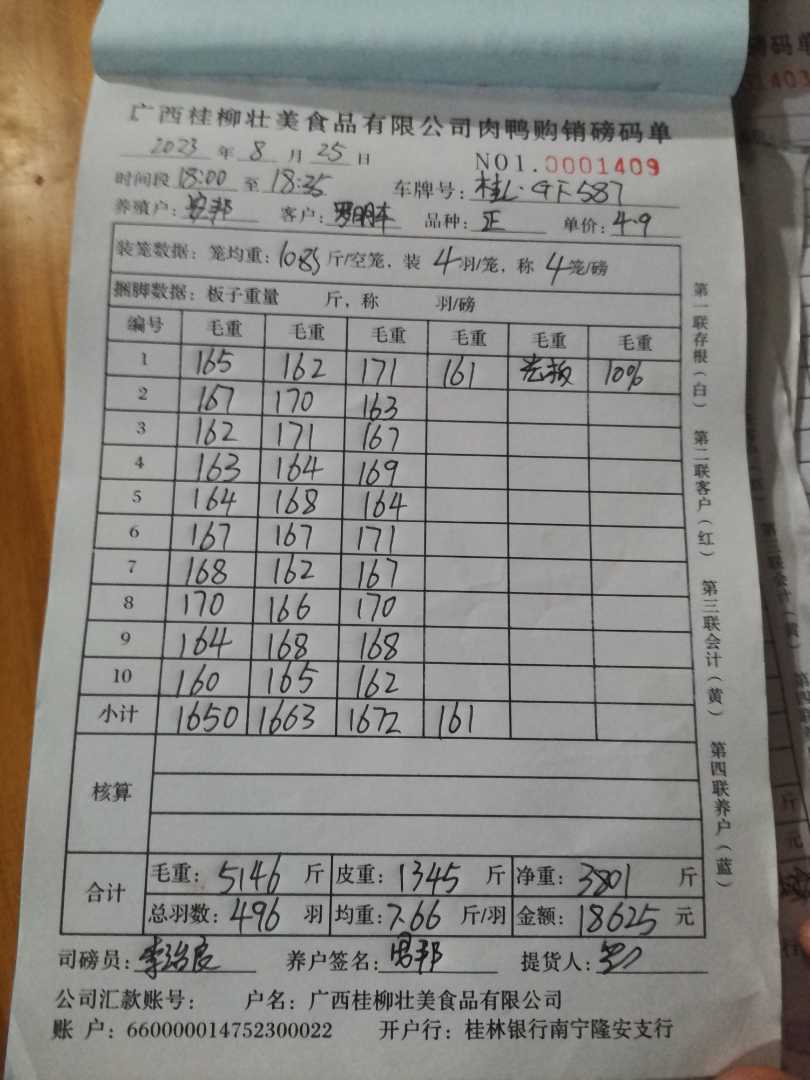 广西桂柳壮美食品有限公司肉鸭购销磅码单
2023 年 8 月 25 日 NO1.0001409
时间段 18:00 至 18:35 车牌号: 桂L·GF587
养殖户: 客户: 罗明本 品种: 正 单价: 4.9
装笼数据: 笼均重: 10.85 斤/空笼, 装 4 羽/笼, 称 4 笼/磅
捆脚数据: 板子重量 斤, 称 羽/磅
编号 毛重 毛重 毛重 毛重 毛重 毛重
1 165 162 171 161 老板 10%
2 167 170 163
3 162 171 167
4 163 164 169
5 164 168 164
6 167 167 171
7 168 162 167
8 170 166 170
9 164 168 168
10 160 165 162
小计 1650 1663 1672 161
核算
合计 毛重: 5146 斤 皮重: 1345 斤 净重: 3801 斤
总羽数: 496 羽 均重: 7.66 斤/羽 金额: 18625 元
司磅员: 李治良 养户签名: 提货人:
公司汇款账号: 户名: 广西桂柳壮美食品有限公司
账 户: 660000014752300022 开户行: 桂林银行南宁隆安支行
第一联存根(白) 第二联客户(红) 第三联会计(黄) 第四联养户(蓝)